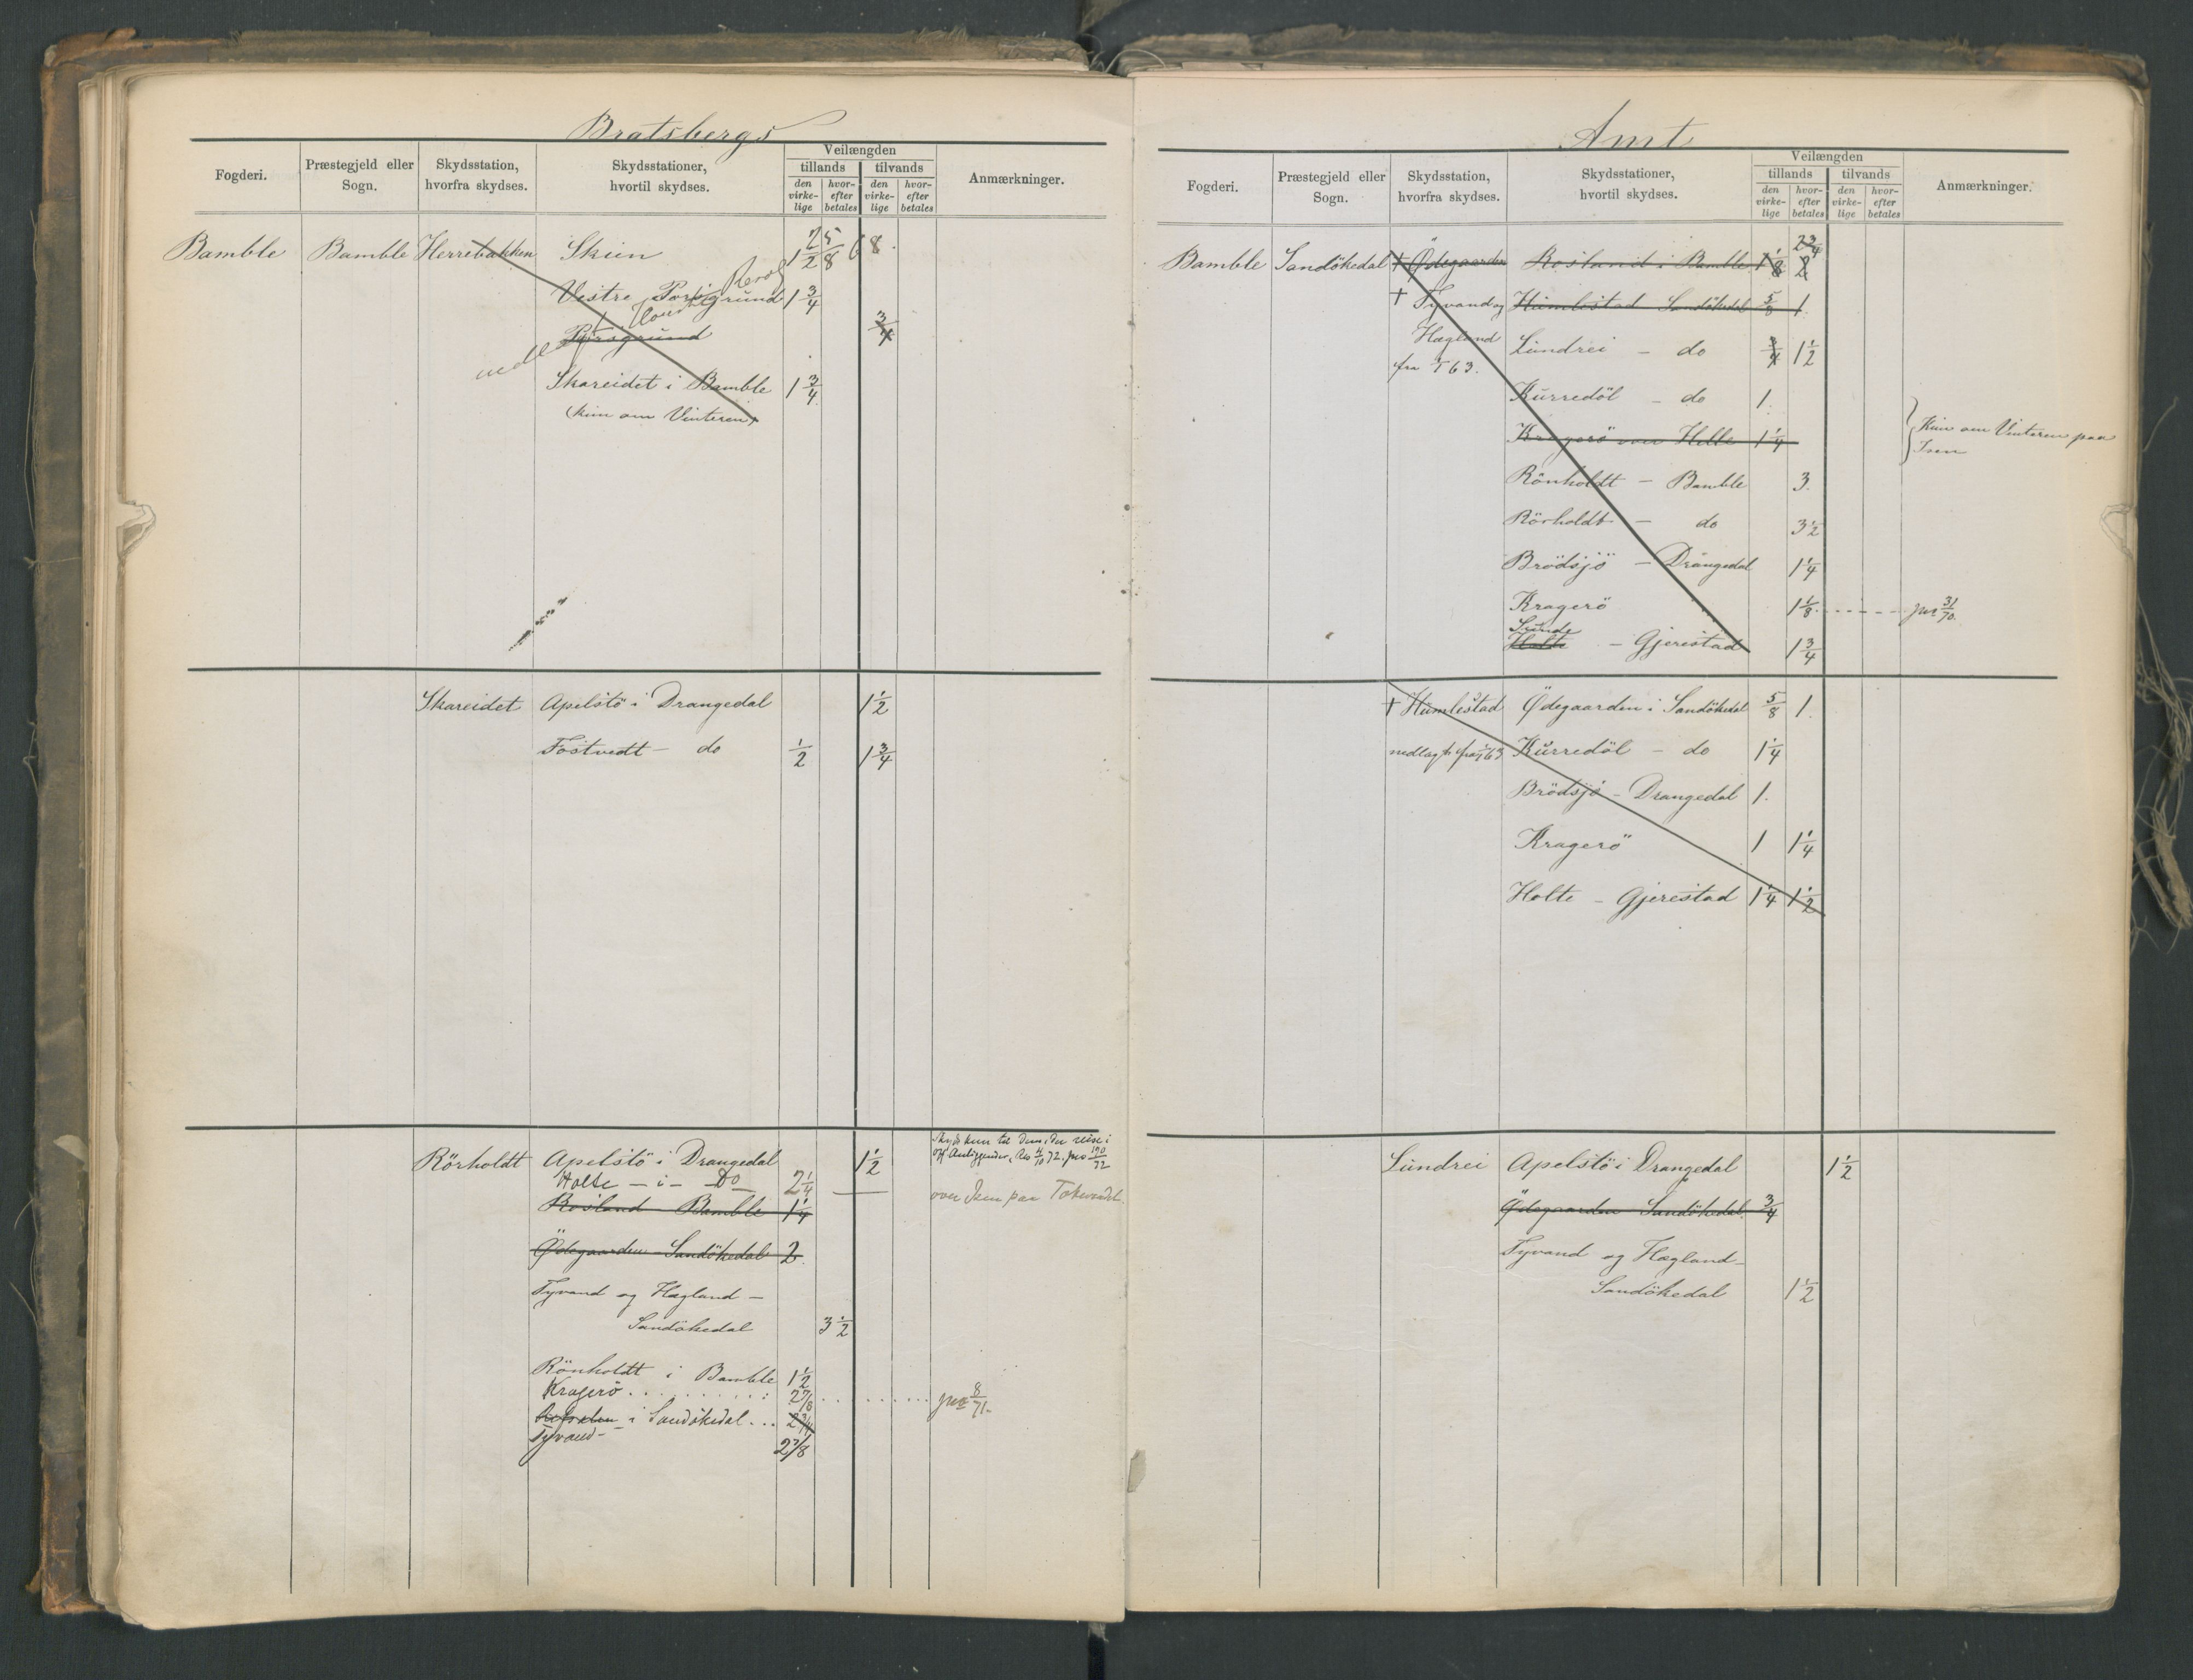 Bratsbergs
Fogderi. Præstegjeld eller Sogn. Skydsstation, hvorfra skydses. Skydsstationer, hvortil skydses. Veilængden tillands den virkelige hvorefter betales tilvands den virkelige hvorefter betales Anmærkninger.
Bamble Bamble Herrebakken Skien
Vestre Porsgrund 1 3/4
Porsgrund 3/4
Skareidet i Bamble 1 3/4
(kun om Vinteren)
Skareidet Apelstö i Drangedal 1 1/2
Tostvedt - do 1/2 1 3/4
Rörholdt Apelstö i Drangedal 1 1/2
Holte - i - Do 2 1/4
Rosland Bamble 1 1/4
Ödegaarden - Sandökedal 2.
Tyvand og Hægland -
Sandökedal 3 1/2
Rönholdt i Bamble 1 1/2
Kragerö 2 7/8 jno 8/71.
i Sandökedal 2 3/4
Tyvand - 2 7/8
Skyds kun til dem, der reise i
off. Anliggender, Res 4/10 72, jno 190/72
over Isen paa Tokevandet.
Amt
Fogderi. Præstegjeld eller Sogn. Skydsstation, hvorfra skydses. Skydsstationer, hvortil skydses. Veilængden tillands den virkelige hvorefter betales tilvands den virkelige hvorefter betales Anmærkninger.
Bamble Sandökedal + Ödegaarden Rosland i Bamble 1 1/8 2 2 3/4
+ Tyvand og Humlestad Sandökedal 5/8 1.
Hægland Lundrei - do 3/4 1 1/2
fra 1/1 63.
Kurredöl - do 1.
Kragerö over Helle 1 1/4
Kun om Vinteren paa
Isen
Rönholdt - Bamble 3.
Rörholdt - do 3 1/2
Brödsjö - Drangedal 1 1/4
Kragerö 1 1/8 jno 31/70.
Sunde
Holte - Gjerestad 1 3/4
+ Humlestad Ödegaarden i Sandökedal 5/8 1.
nedlagt fra 1/1 63 Kurredöl - do 1 1/4
Brödsjö - Drangedal 1.
Kragerö 1 1 1/4
Holte - Gjerestad 1 1/4 1 1/2
Lundrei Apelstö i Drangedal 1 1/2
Ödegaarden Sandökedal 3/4
Tyvand og Hægland -
Sandökedal 1 1/2